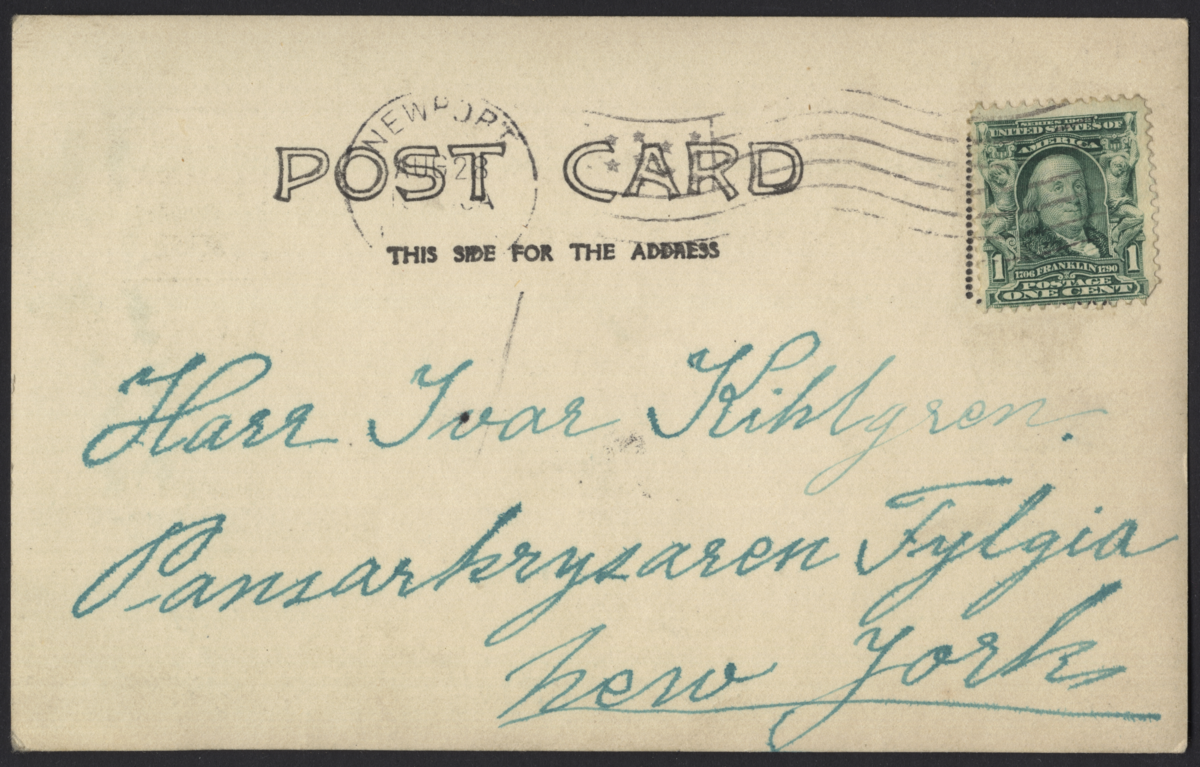 NEWPORT
AUG 28
POST CARD
THIS SIDE FOR THE ADDRESS
SERIES 1902
UNITED STATES OF
AMERICA
1706 FRANKLIN 1790
1 POSTAGE 1
ONE CENT
Harr Ivar Kihlgren.
Pansarkrysaren Fylgia
New York